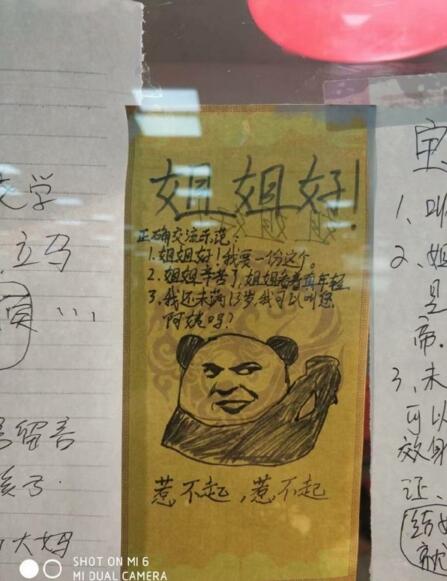 文学
立马
姐姐好!
正确交流示范:
1.姐姐好!我要一份这个。
2.姐姐辛苦了,姐姐看着真年轻
3,我还未满13岁,我可以叫您
阿姨吗?
惹不起,惹不起
留言
大妈
1、叫
2、姐
是
而.
3、未
可以
效身
证、
SHOT ON MI 6
MI DUAL CAMERA